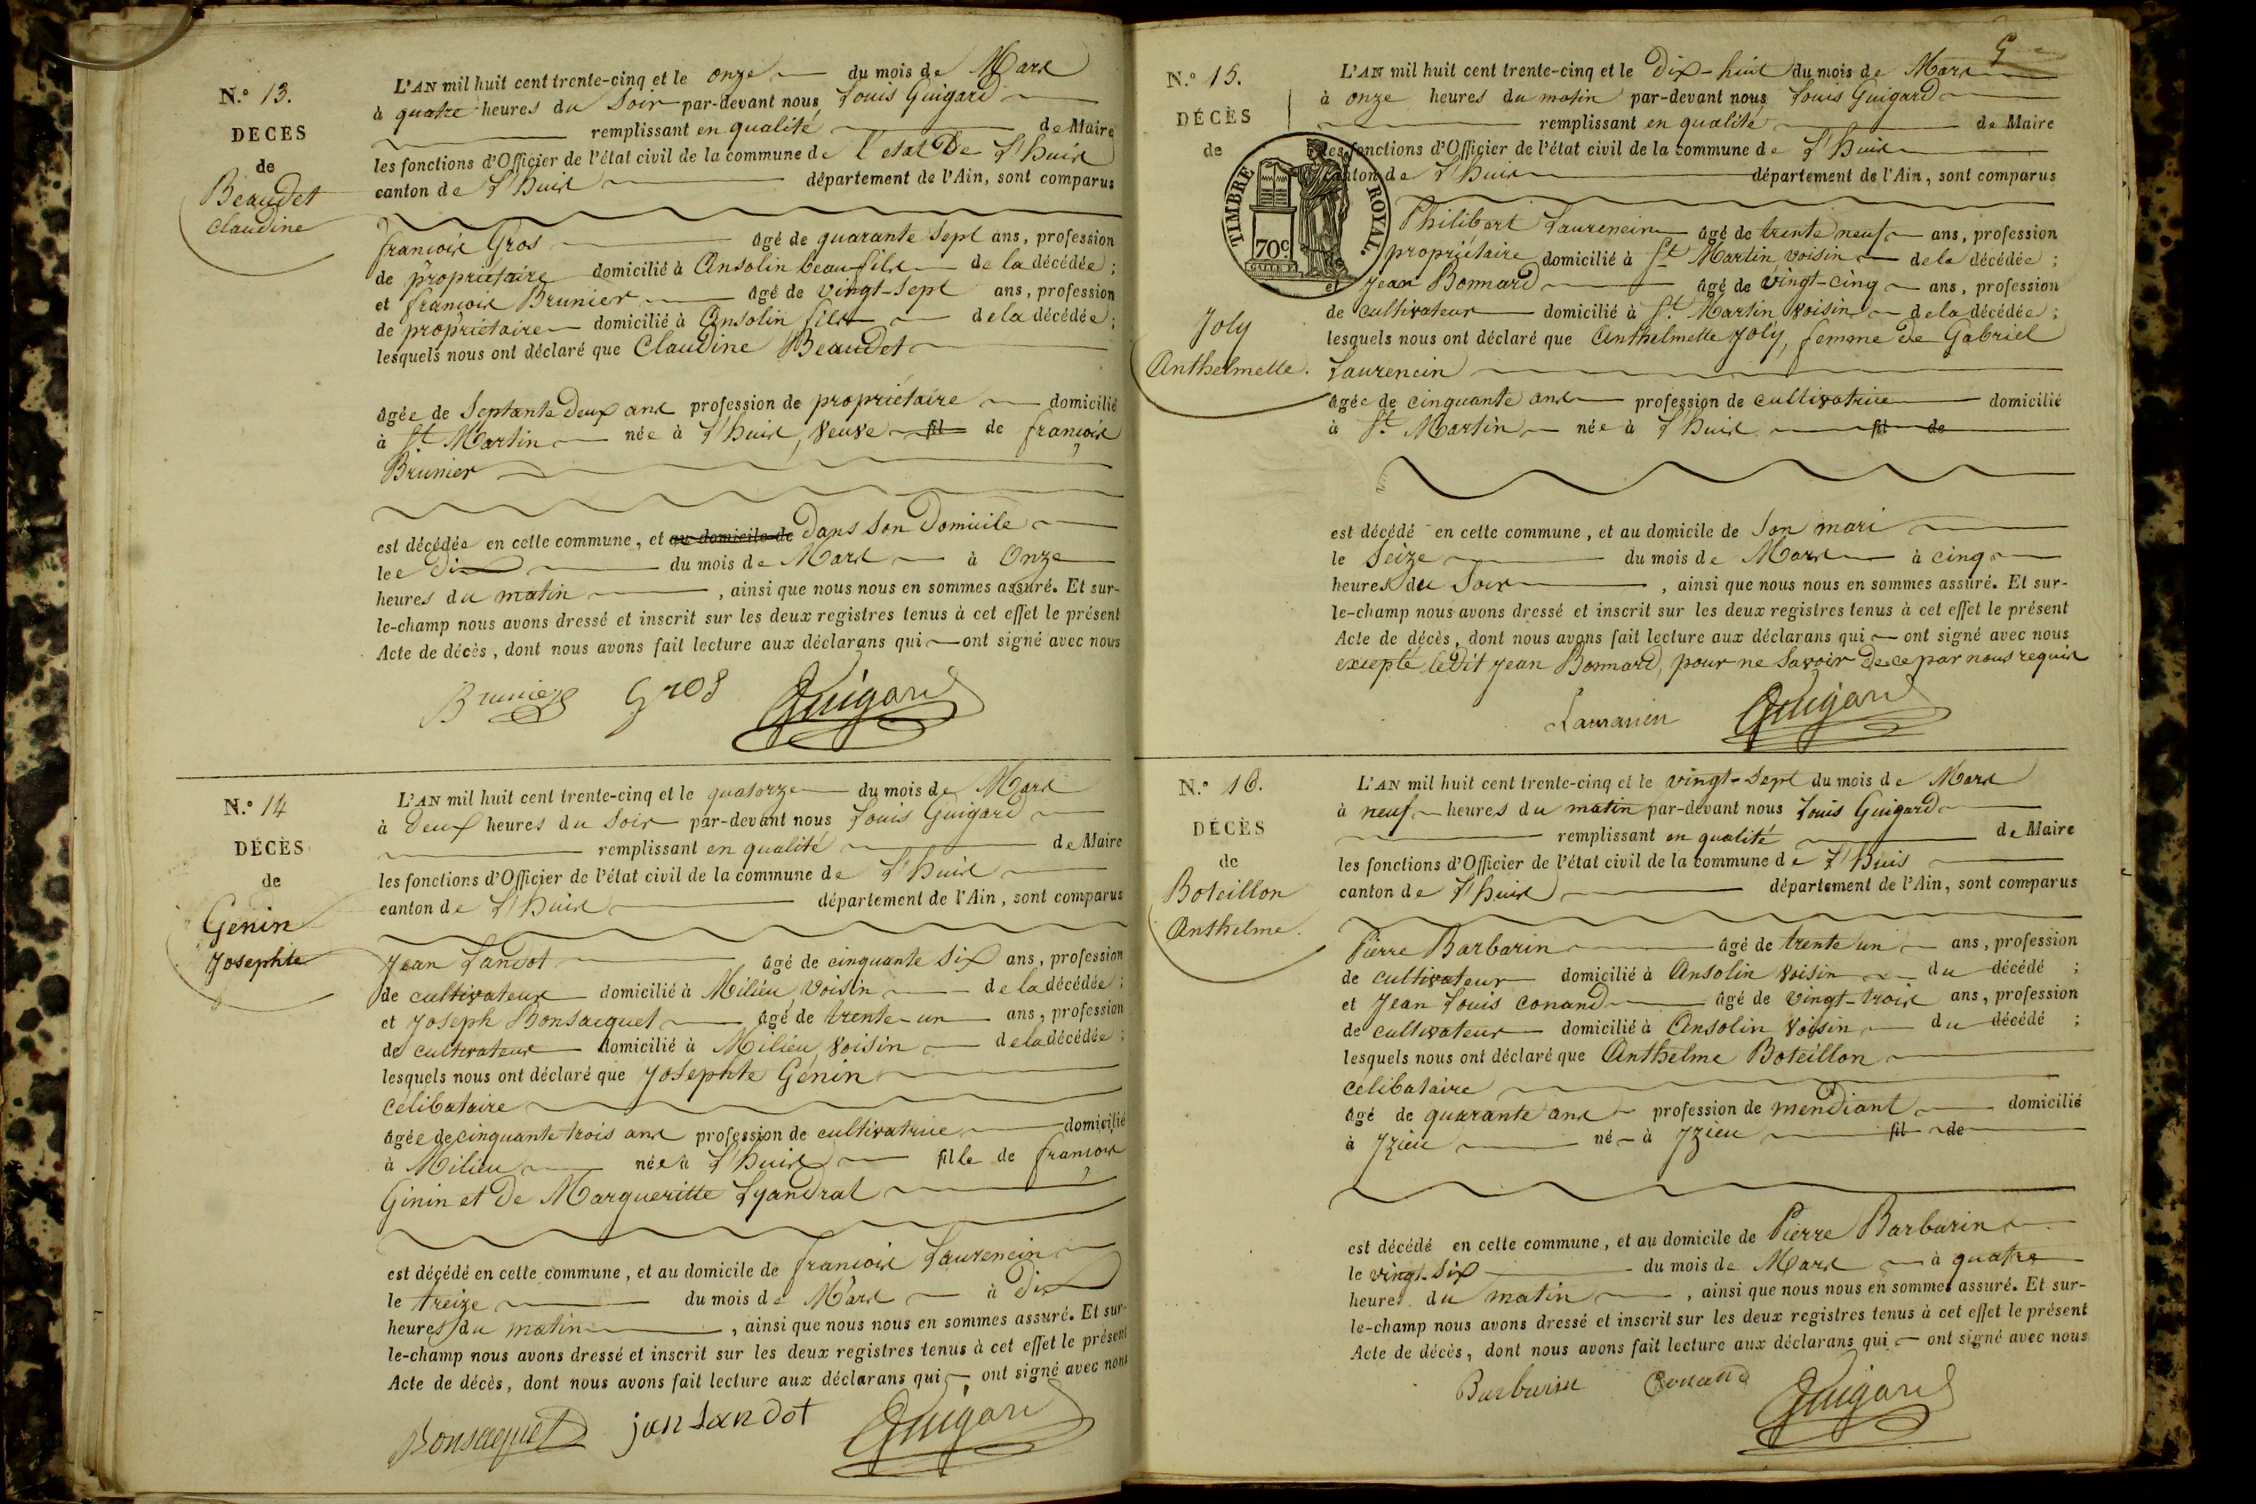 N.º 13.
DÉCÈS
de
Beaudet
Claudine
L'AN mil huit cent trente-cinq et le onze du mois de Mars
à quatre heures du Soir par-devant nous Louis Guigard
remplissant en qualité de Maire
les fonctions d'Officier de l'état civil de la commune de l'état De L'huis
canton de L'huis département de l'Ain, sont comparus
françois Gros âgé de quarante Sept ans, profession
de propriétaire domicilié à Ansolin beaufils de la décédée ;
et françois Brunier âgé de vingt-Sept ans, profession
de propriétaire domicilié à Ansolin fils de la décédée ;
lesquels nous ont déclaré que Claudine Beaudet
âgée de Septante Deux ans profession de propriétaire domicilié
à St Martin née à L'huis, veuve fil de françois
Brunier
est décédée en cette commune, et au domicile de Dans Son Domicile
le Dix du mois de Mars à Onze
heures du matin , ainsi que nous nous en sommes assuré. Et sur-
le-champ nous avons dressé et inscrit sur les deux registres tenus à cet effet le présent
Acte de décès, dont nous avons fait lecture aux déclarans qui ont signé avec nous
Brunier Gros Guigard
N.º 14
DÉCÈS
de
Genin
Josephte
L'AN mil huit cent trente-cinq et le quatorze du mois de Mars
à Deux heures du Soir par-devant nous Louis Guigard
remplissant en qualité de Maire
les fonctions d'Officier de l'état civil de la commune de L'huis
canton de L'huis département de l'Ain, sont comparus
Jean Landot âgé de cinquante Six ans, profession
de cultivateur domicilié à Milieu, Voisin de la décédée ;
et Joseph Bonsacquet âgé de trente-un ans, profession
de cultivateur domicilié à Milieu, Voisin de la décédée ;
lesquels nous ont déclaré que Josephte Génin
célibataire
âgée de cinquante trois ans profession de cultivatrice domicilié
à Milieu née à L'huis fille de françois
Ginin et De Margueritte Lyandrat
est décédé en cette commune, et au domicile de françois Laurencin
le treize du mois de Mars à Dix
heures du matin , ainsi que nous nous en sommes assuré. Et sur-
le-champ nous avons dressé et inscrit sur les deux registres tenus à cet effet le présent
Acte de décès, dont nous avons fait lecture aux déclarans qui ont signé avec nous
Bonsacquet jan Landot Guigard
N.º 15.
DÉCÈS
de
Joly
Anthelmette.
TIMBRE ROYAL
70c
L'AN mil huit cent trente-cinq et le Dix-huit du mois de Mars
à onze heures du matin par-devant nous Louis Guigard
remplissant en qualité de Maire
les fonctions d'Officier de l'état civil de la commune de L'huis
canton de L'huis département de l'Ain, sont comparus
Philibert Laurencin âgé de trente neuf ans, profession
propriétaire domicilié à St Martin, voisin de la décédée ;
et Jean Bonnard âgé de vingt-cinq ans, profession
de cultivateur domicilié à St Martin Voisin de la décédée ;
lesquels nous ont déclaré que Anthelmette Joly, femme De Gabriel
Laurencin
âgée de cinquante ans profession de cultivatrice domicilié
à St Martin née à L'huis fil de
est décédé en cette commune, et au domicile de Son mari
le Seize du mois de Mars à cinq
heures du Soir , ainsi que nous nous en sommes assuré. Et sur-
le-champ nous avons dressé et inscrit sur les deux registres tenus à cet effet le présent
Acte de décès, dont nous avons fait lecture aux déclarans qui ont signé avec nous
excepté ledit Jean Bonnard, pour ne Savoir De ce par nous requis
Laurancin Guigard
N.º 16.
DÉCÈS
de
Boteillon
Anthelme.
L'AN mil huit cent trente-cinq et le vingt-Sept du mois de Mars
à neuf heures du matin par-devant nous Louis Guigard
remplissant en qualité de Maire
les fonctions d'Officier de l'état civil de la commune de L'huis
canton de L'huis département de l'Ain, sont comparus
Pierre Barbarin âgé de trente un ans, profession
de cultivateur domicilié à Ansolin Voisin du décédé ;
et Jean Louis Conand âgé de vingt-trois ans, profession
de cultivateur domicilié à Ansolin Voisin du décédé ;
lesquels nous ont déclaré que Anthelme Boteillon
celibataire
âgé de quarante ans profession de mendiant domicilié
à Izieu né à Izieu fil de
est décédé en cette commune, et au domicile de Pierre Barbarin
le vingt-Six du mois de Mars à quatre
heures du matin , ainsi que nous nous en sommes assuré. Et sur-
le-champ nous avons dressé et inscrit sur les deux registres tenus à cet effet le présent
Acte de décès, dont nous avons fait lecture aux déclarans qui ont signé avec nous
Barbarin Conand Guigard